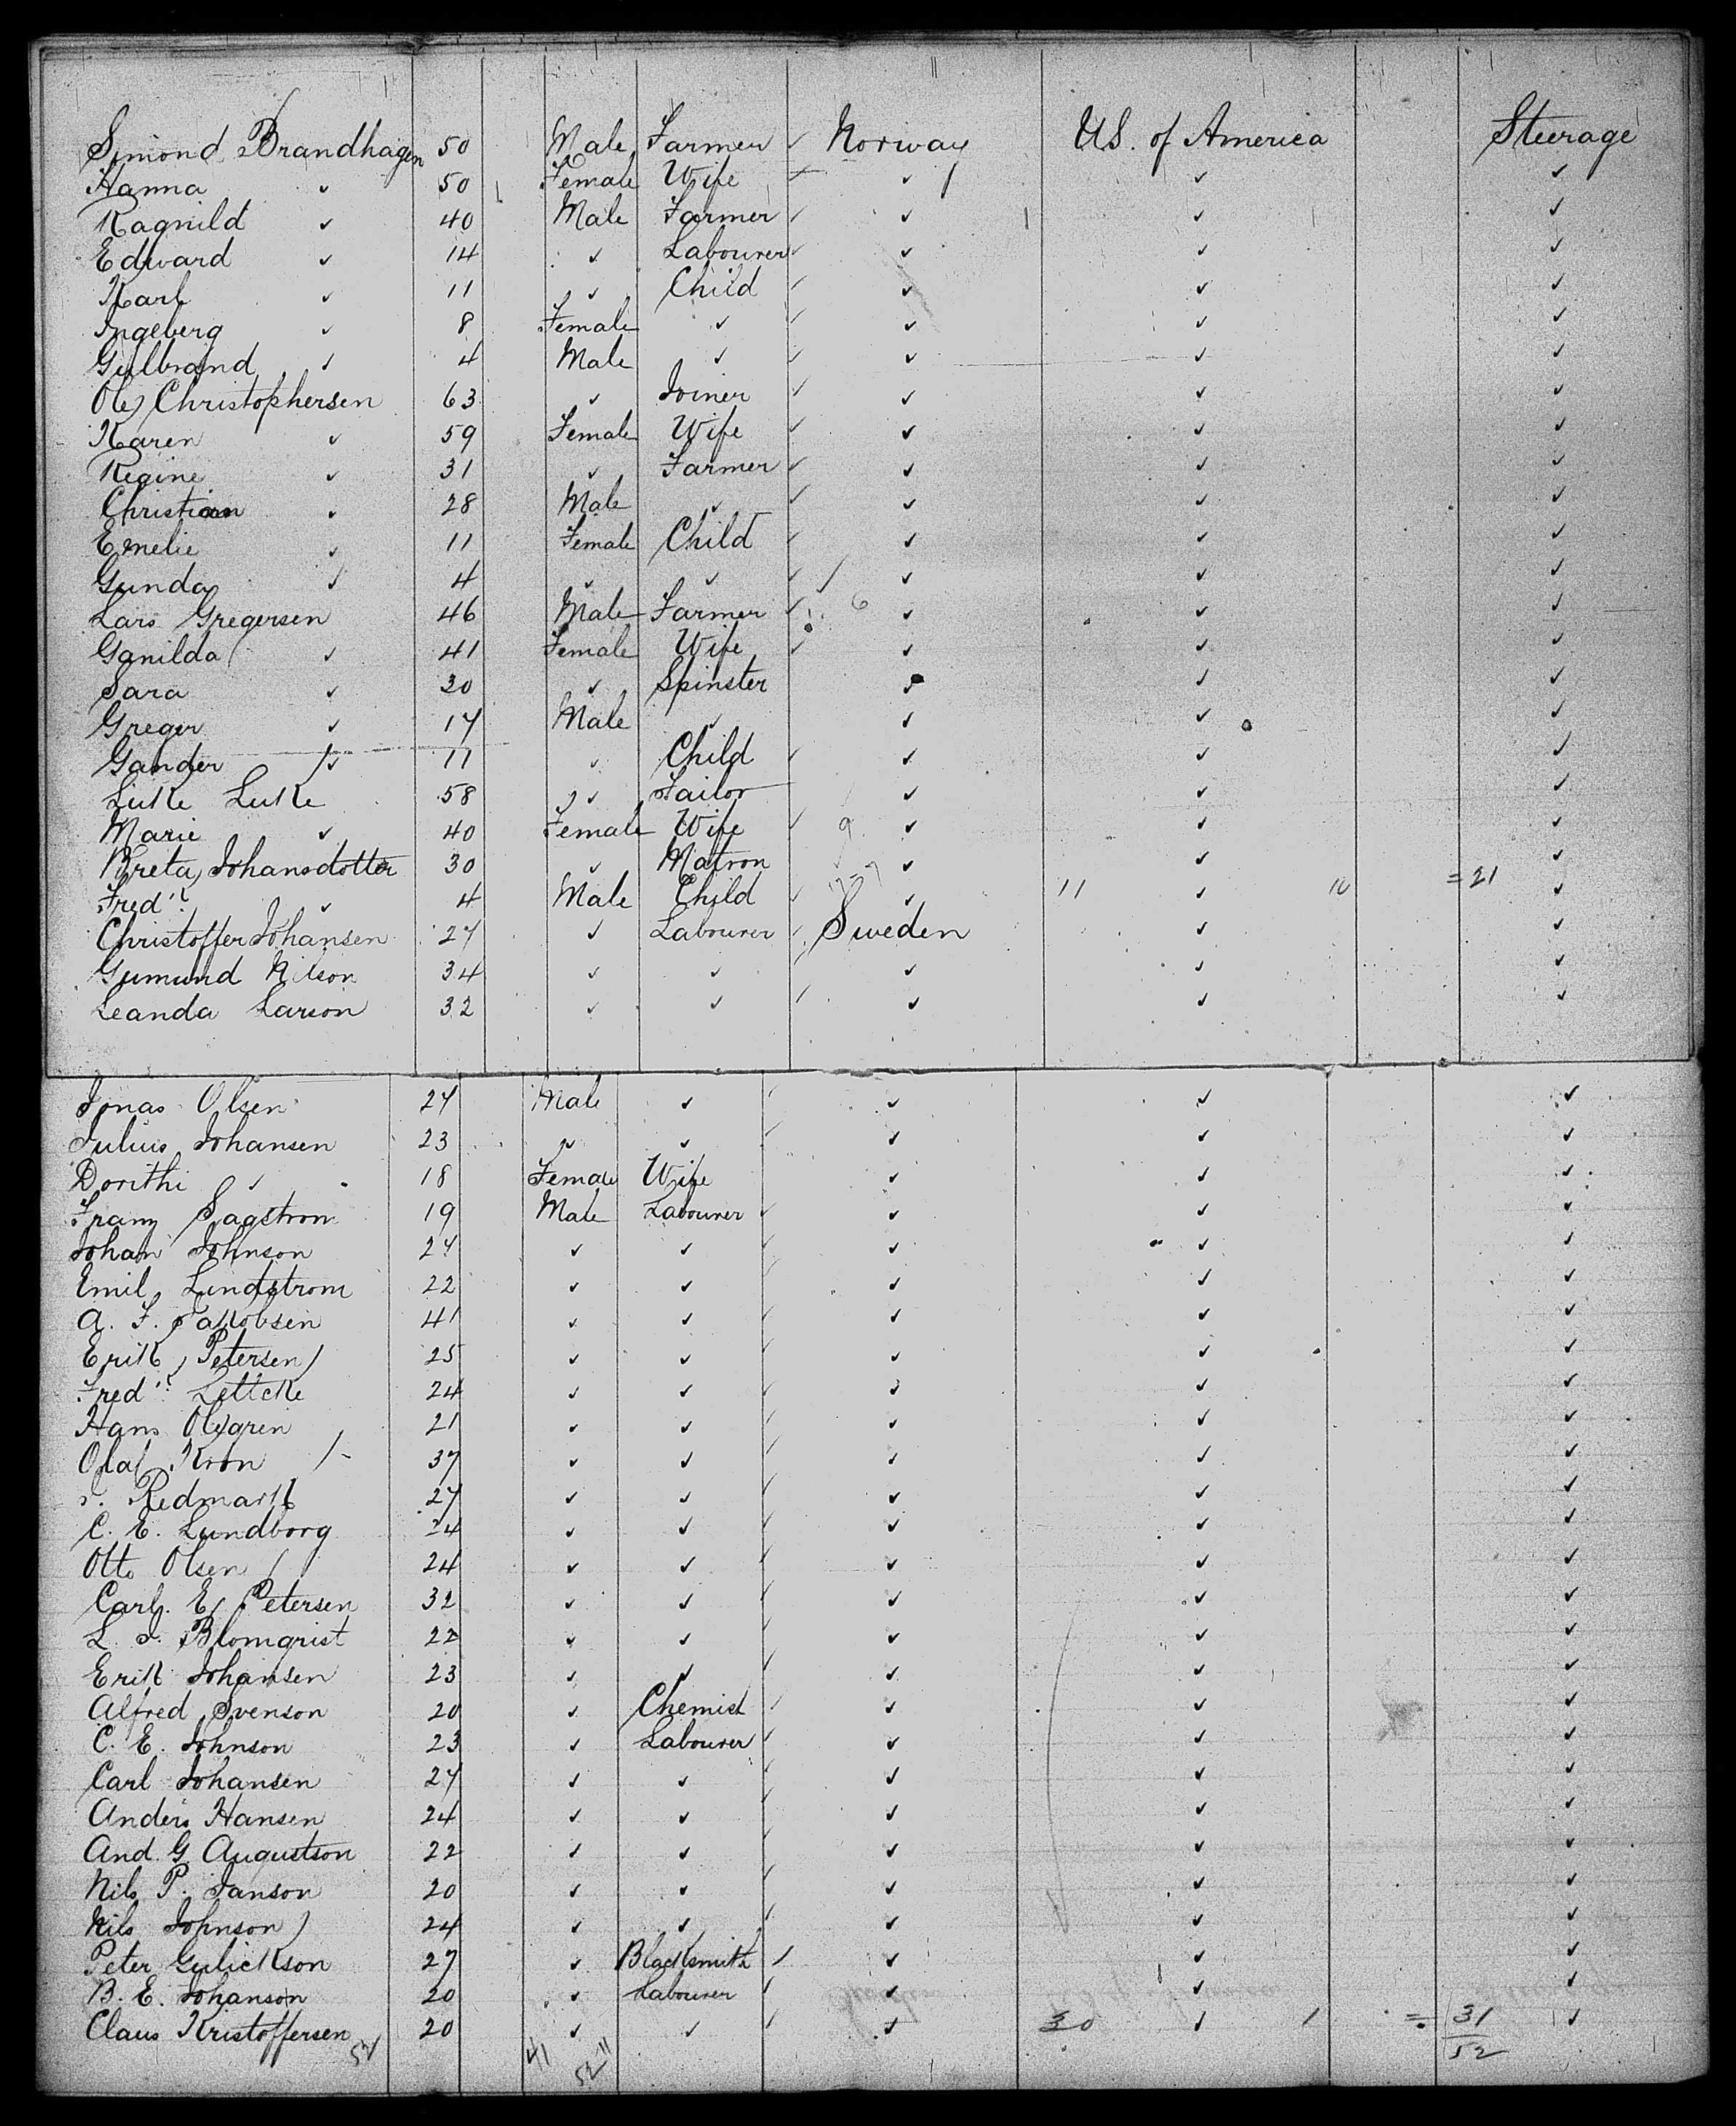 Simond Brandhagen 50 Male Farmer ✓ Norway U.S. of America Steerage
Hanna ✓ 50 Female Wife ✓ ✓ ✓ ✓
Ragnild ✓ 40 Male Farmer ✓ ✓ ✓ ✓
Edward ✓ 14 ✓ Labourer ✓ ✓ ✓ ✓
Karl ✓ 11 ✓ Child ✓ ✓ ✓ ✓
Ingeberg ✓ 8 Female ✓ ✓ ✓ ✓ ✓
Gulbrand ✓ 4 Male ✓ ✓ ✓ ✓ ✓
Ole Christophersen 63 ✓ Joiner ✓ ✓ ✓ ✓
Karen ✓ 59 Female Wife ✓ ✓ ✓ ✓
Regine ✓ 31 ✓ Farmer ✓ ✓ ✓ ✓
Christian ✓ 28 Male ✓ ✓ ✓ ✓ ✓
Emelie ✓ 11 Female Child ✓ ✓ ✓ ✓
Gunda ✓ 4 ✓ ✓ ✓ ✓ ✓ ✓
Lars Gregersen 46 Male Farmer ✓ 6 ✓ ✓ ✓
Ganilda ✓ 41 Female Wife ✓ ✓ ✓ ✓
Sara ✓ 20 ✓ Spinster ✓ ✓ ✓
Greger ✓ 17 Male ✓ ✓ ✓ ✓
Gander ✓ 11 ✓ Child ✓ ✓ ✓ ✓
Luke Luke 58 ✓ Tailor ✓ ✓ ✓
Marie ✓ 40 Female Wife ✓ 9 ✓ ✓ ✓
Breta Johansdotter 30 ✓ Matron ✓ ✓ ✓
Fredk ✓ 4 Male Child ✓ ✓ 11 ✓ 10 =21 ✓
Christoffer Johansen 27 ✓ Labourer ✓ Sweden ✓ ✓
Gumund Nilson 34 ✓ ✓ ✓ ✓ ✓ ✓
Leanda Larson 32 ✓ ✓ ✓ ✓ ✓ ✓
Jonas Olsen 27 Male ✓ ✓ ✓ ✓ ✓
Julius Johansen 23 ✓ ✓ ✓ ✓ ✓ ✓
Dorithi ✓ 18 Female Wife ✓ ✓ ✓
Franz Sagstrom 19 Male Labourer ✓ ✓ ✓ ✓
Johan Johnson 27 ✓ ✓ ✓ ✓ ✓ ✓
Emil Lindstrom 22 ✓ ✓ ✓ ✓ ✓ ✓
A. F. Jakobsen 41 ✓ ✓ ✓ ✓ ✓ ✓
Erik Petersen 25 ✓ ✓ ✓ ✓ ✓ ✓
Fredk Lettcke 24 ✓ ✓ ✓ ✓ ✓ ✓
Hans Olegren 21 ✓ ✓ ✓ ✓ ✓ ✓
Olaf Kron 37 ✓ ✓ ✓ ✓ ✓ ✓
Redmark 27 ✓ ✓ ✓ ✓ ✓ ✓
C. E. Lundborg 24 ✓ ✓ ✓ ✓ ✓ ✓
Otto Olsen 24 ✓ ✓ ✓ ✓ ✓ ✓
Carl. E. Petersen 32 ✓ ✓ ✓ ✓ ✓ ✓
L. J. Blomqrist 22 ✓ ✓ ✓ ✓ ✓ ✓
Erik Johansen 23 ✓ ✓ ✓ ✓ ✓ ✓
Alfred Svenson 20 ✓ Chemist ✓ ✓ ✓ ✓
C. E. Johnson 23 ✓ Labourer ✓ ✓ ✓ ✓
Carl Johansen 27 ✓ ✓ ✓ ✓ ✓ ✓
Anders Hansen 24 ✓ ✓ ✓ ✓ ✓ ✓
And. G Augustson 22 ✓ ✓ ✓ ✓ ✓ ✓
Nils P. Janson 20 ✓ ✓ ✓ ✓ ✓ ✓
Nils Johnson 24 ✓ ✓ ✓ ✓ ✓ ✓
Peter Gulickson 27 ✓ Blacksmith ✓ ✓ ✓ ✓
B. E. Johanson 20 ✓ Labourer ✓ ✓ ✓ ✓
Claus Kristoffersen 20 ✓ ✓ ✓ ✓ 30 ✓ 1 = 31 ✓
52 41 52 11 52